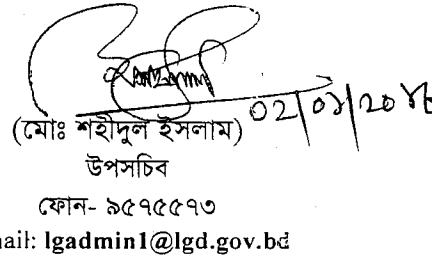 (মোঃ শহীদুল ইসলাম)
উপসচিব
ফোন- ৯৫৭৫৫৭৩
mail: lgadmin1@lgd.gov.bd